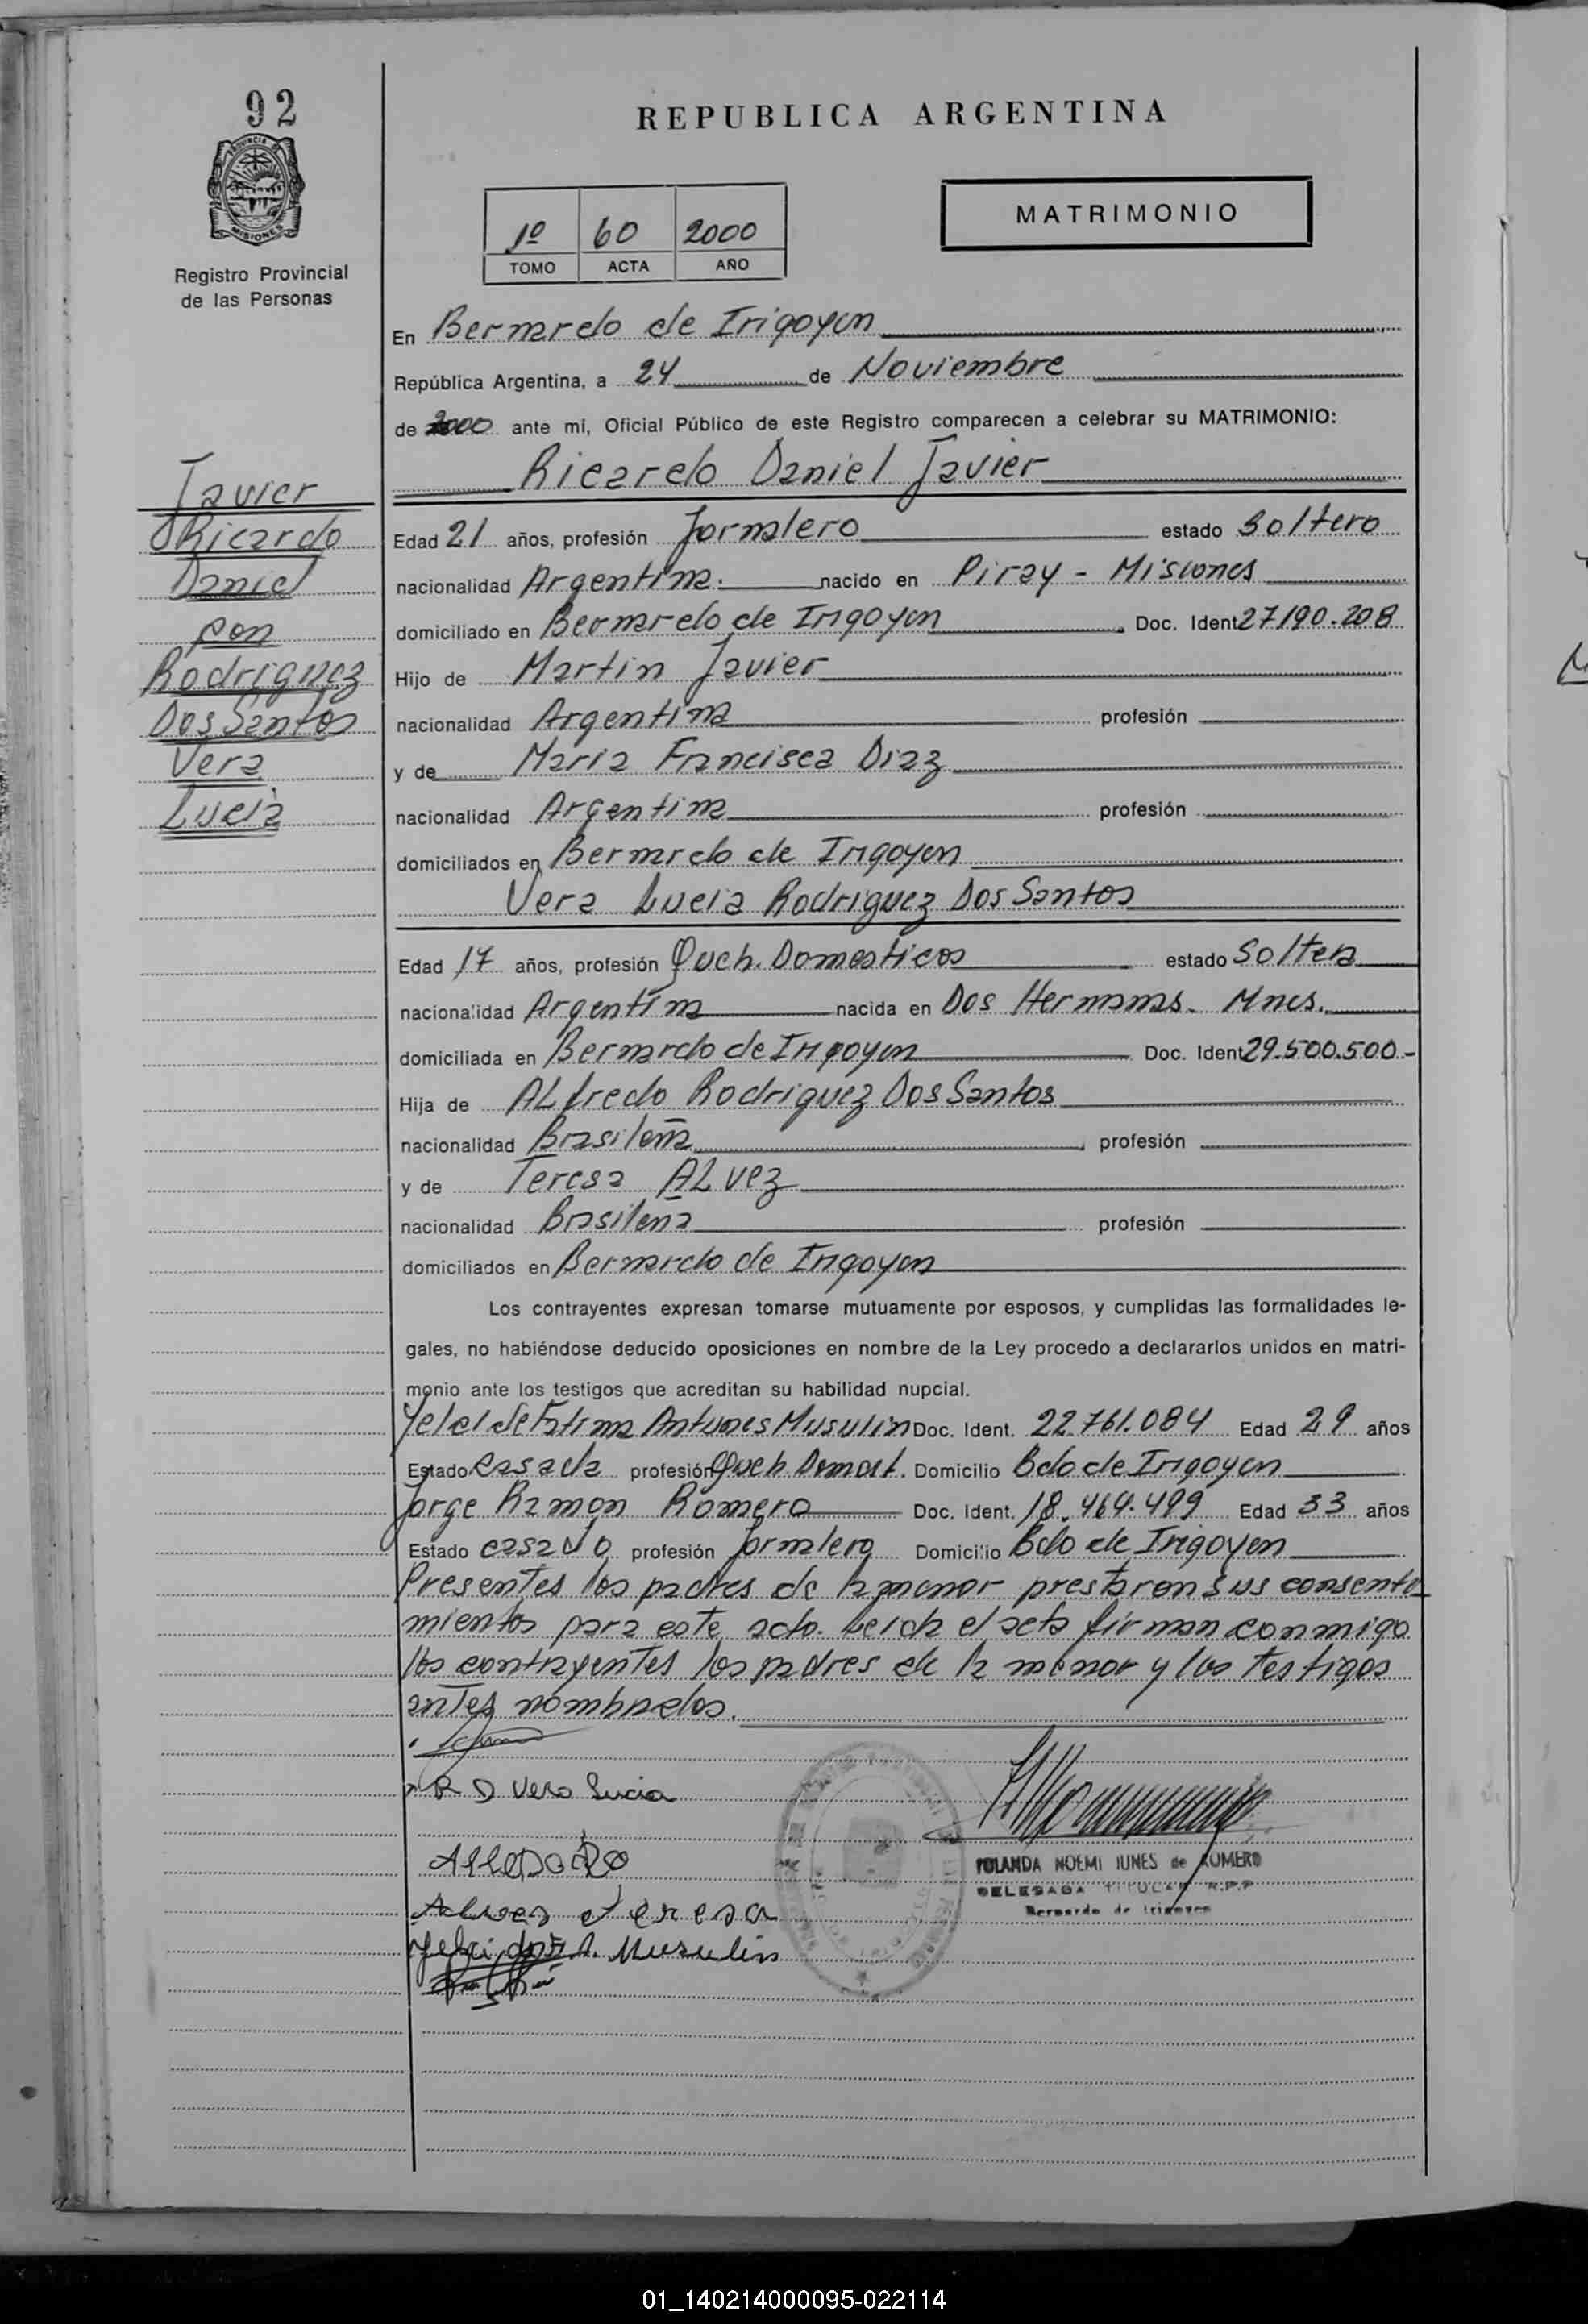 92
PROVINCIA DE
MISIONES
Registro Provincial
de las Personas
REPUBLICA ARGENTINA
1º 60 2000
TOMO ACTA AÑO
MATRIMONIO
En Bernardo de Irigoyen
República Argentina, a 24 de Noviembre
de 2000 ante mi, Oficial Público de este Registro comparecen a celebrar su MATRIMONIO:
Ricardo Daniel Javier
Javier
Ricardo
Daniel
con
Rodriguez
Dos Santos
Vera
Lucia
Edad 21 años, profesión Jornalero estado Soltero
nacionalidad Argentina. nacido en Piray - Misiones
domiciliado en Bernardo de Irigoyen Doc. Ident 27190.208
Hijo de Martin Javier
nacionalidad Argentina profesión
y de Maria Francisca Diaz
nacionalidad Argentina profesión
domiciliados en Bernardo de Irigoyen
Vera Lucia Rodriguez Dos Santos
Edad 17 años, profesión Queh. Domesticos estado Soltera
nacionalidad Argentina nacida en Dos Hermanas - Mnes.
domiciliada en Bernardo de Irigoyen Doc. Ident 29.500.500.-
Hija de ALfredo Rodriguez Dos Santos
nacionalidad Brasileña profesión
y de Teresa ALvez
nacionalidad Brasileña profesión
domiciliados en Bernardo de Irigoyen
Los contrayentes expresan tomarse mutuamente por esposos, y cumplidas las formalidades le-
gales, no habiéndose deducido oposiciones en nombre de la Ley procedo a declararlos unidos en matri-
monio ante los testigos que acreditan su habilidad nupcial.
de Fatima Antunes Musulin Doc. Ident. 22.761.084 Edad 29 años
Estado casada profesión Queh Domest. Domicilio Bdo de Irigoyen
Jorge Ramon Romero Doc. Ident. 18.464.499 Edad 33 años
Estado casado profesión Jornalero Domicilio Bdo de Irigoyen
Presentes los padres de la menor prestaron sus consenti-
mientos para este acto. Leida el acta firman conmigo
los contrayentes los padres de la menor y los testigos
antes nombrados.
R D Vera Lucia
Alves teresa
Musulin
YOLANDA NOEMI IUNES de ROMERO
DELEGADA TITULAR R.P.P
Bernardo de Irigoyen
01_140214000095-022114